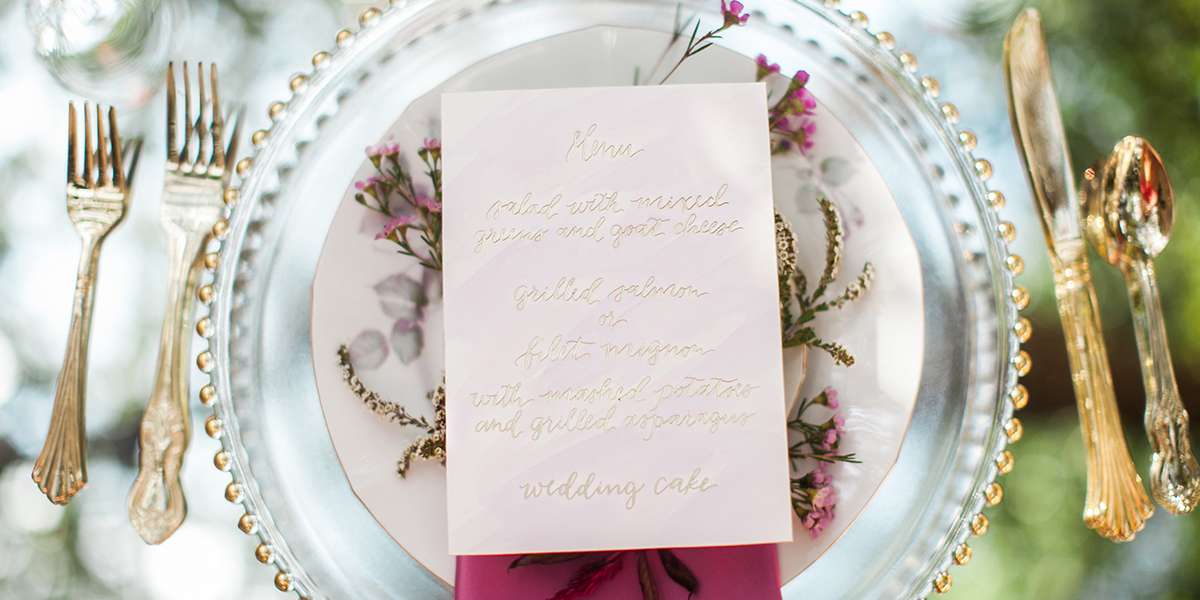 Menu
salad with mixed
greens and goat cheese
grilled salmon
or
filet mignon
with mashed potatoes
and grilled asparagus
wedding cake